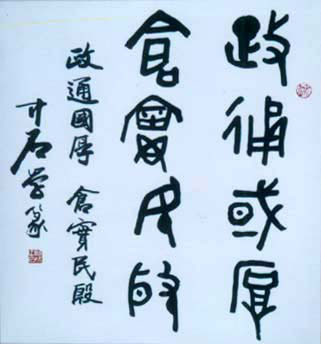 政通國厚
倉實民殷
政通國厚 倉實民殷
寸石学篆